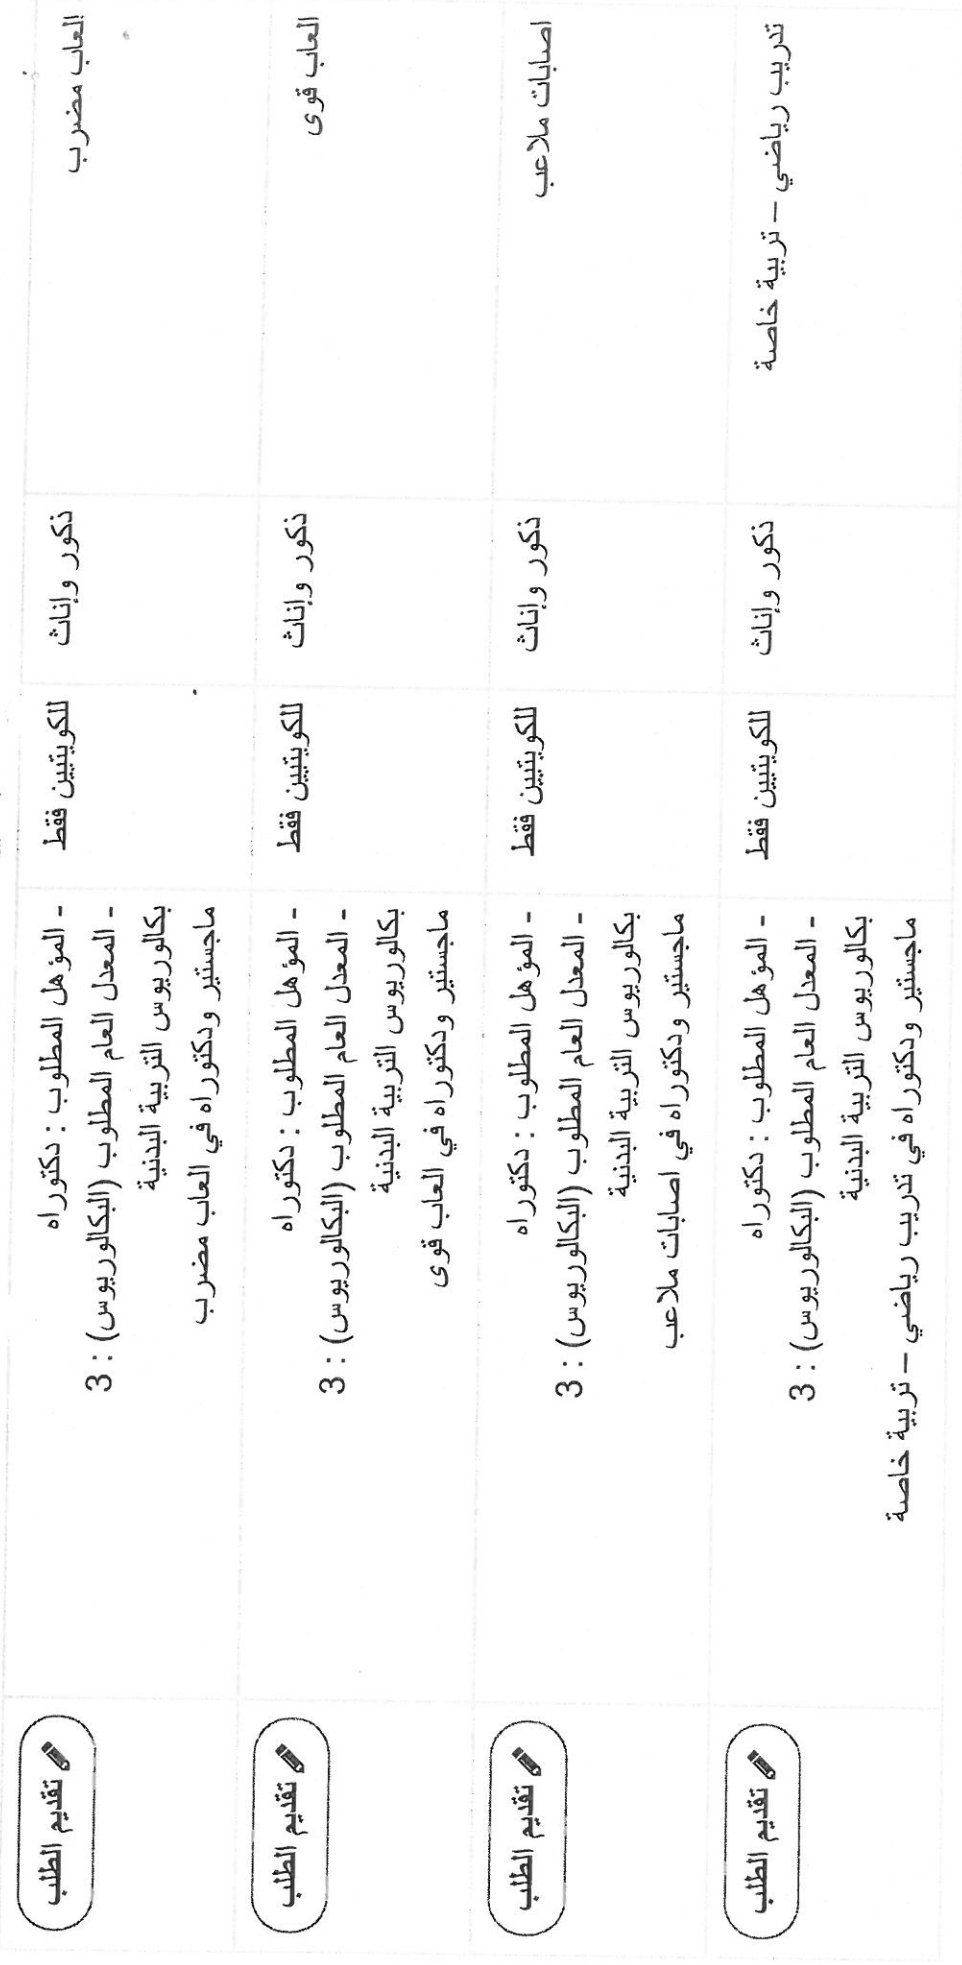 العاب مضرب
ذكور وإناث
للكويتيين فقط
- المؤهل المطلوب : دكتوراه
- المعدل العام المطلوب (البكالوريوس) : 3
بكالوريوس التربية البدنية
ماجستير ودكتوراه في العاب مضرب
تقديم الطلب
العاب قوى
ذكور وإناث
للكويتيين فقط
- المؤهل المطلوب : دكتوراه
- المعدل العام المطلوب (البكالوريوس) : 3
بكالوريوس التربية البدنية
ماجستير ودكتوراه في العاب قوى
تقديم الطلب
اصابات ملاعب
ذكور وإناث
للكويتيين فقط
- المؤهل المطلوب : دكتوراه
- المعدل العام المطلوب (البكالوريوس) : 3
بكالوريوس التربية البدنية
ماجستير ودكتوراه في اصابات ملاعب
تقديم الطلب
تدريب رياضي – تربية خاصة
ذكور وإناث
للكويتيين فقط
- المؤهل المطلوب : دكتوراه
- المعدل العام المطلوب (البكالوريوس) : 3
بكالوريوس التربية البدنية
ماجستير ودكتوراه في تدريب رياضي – تربية خاصة
تقديم الطلب